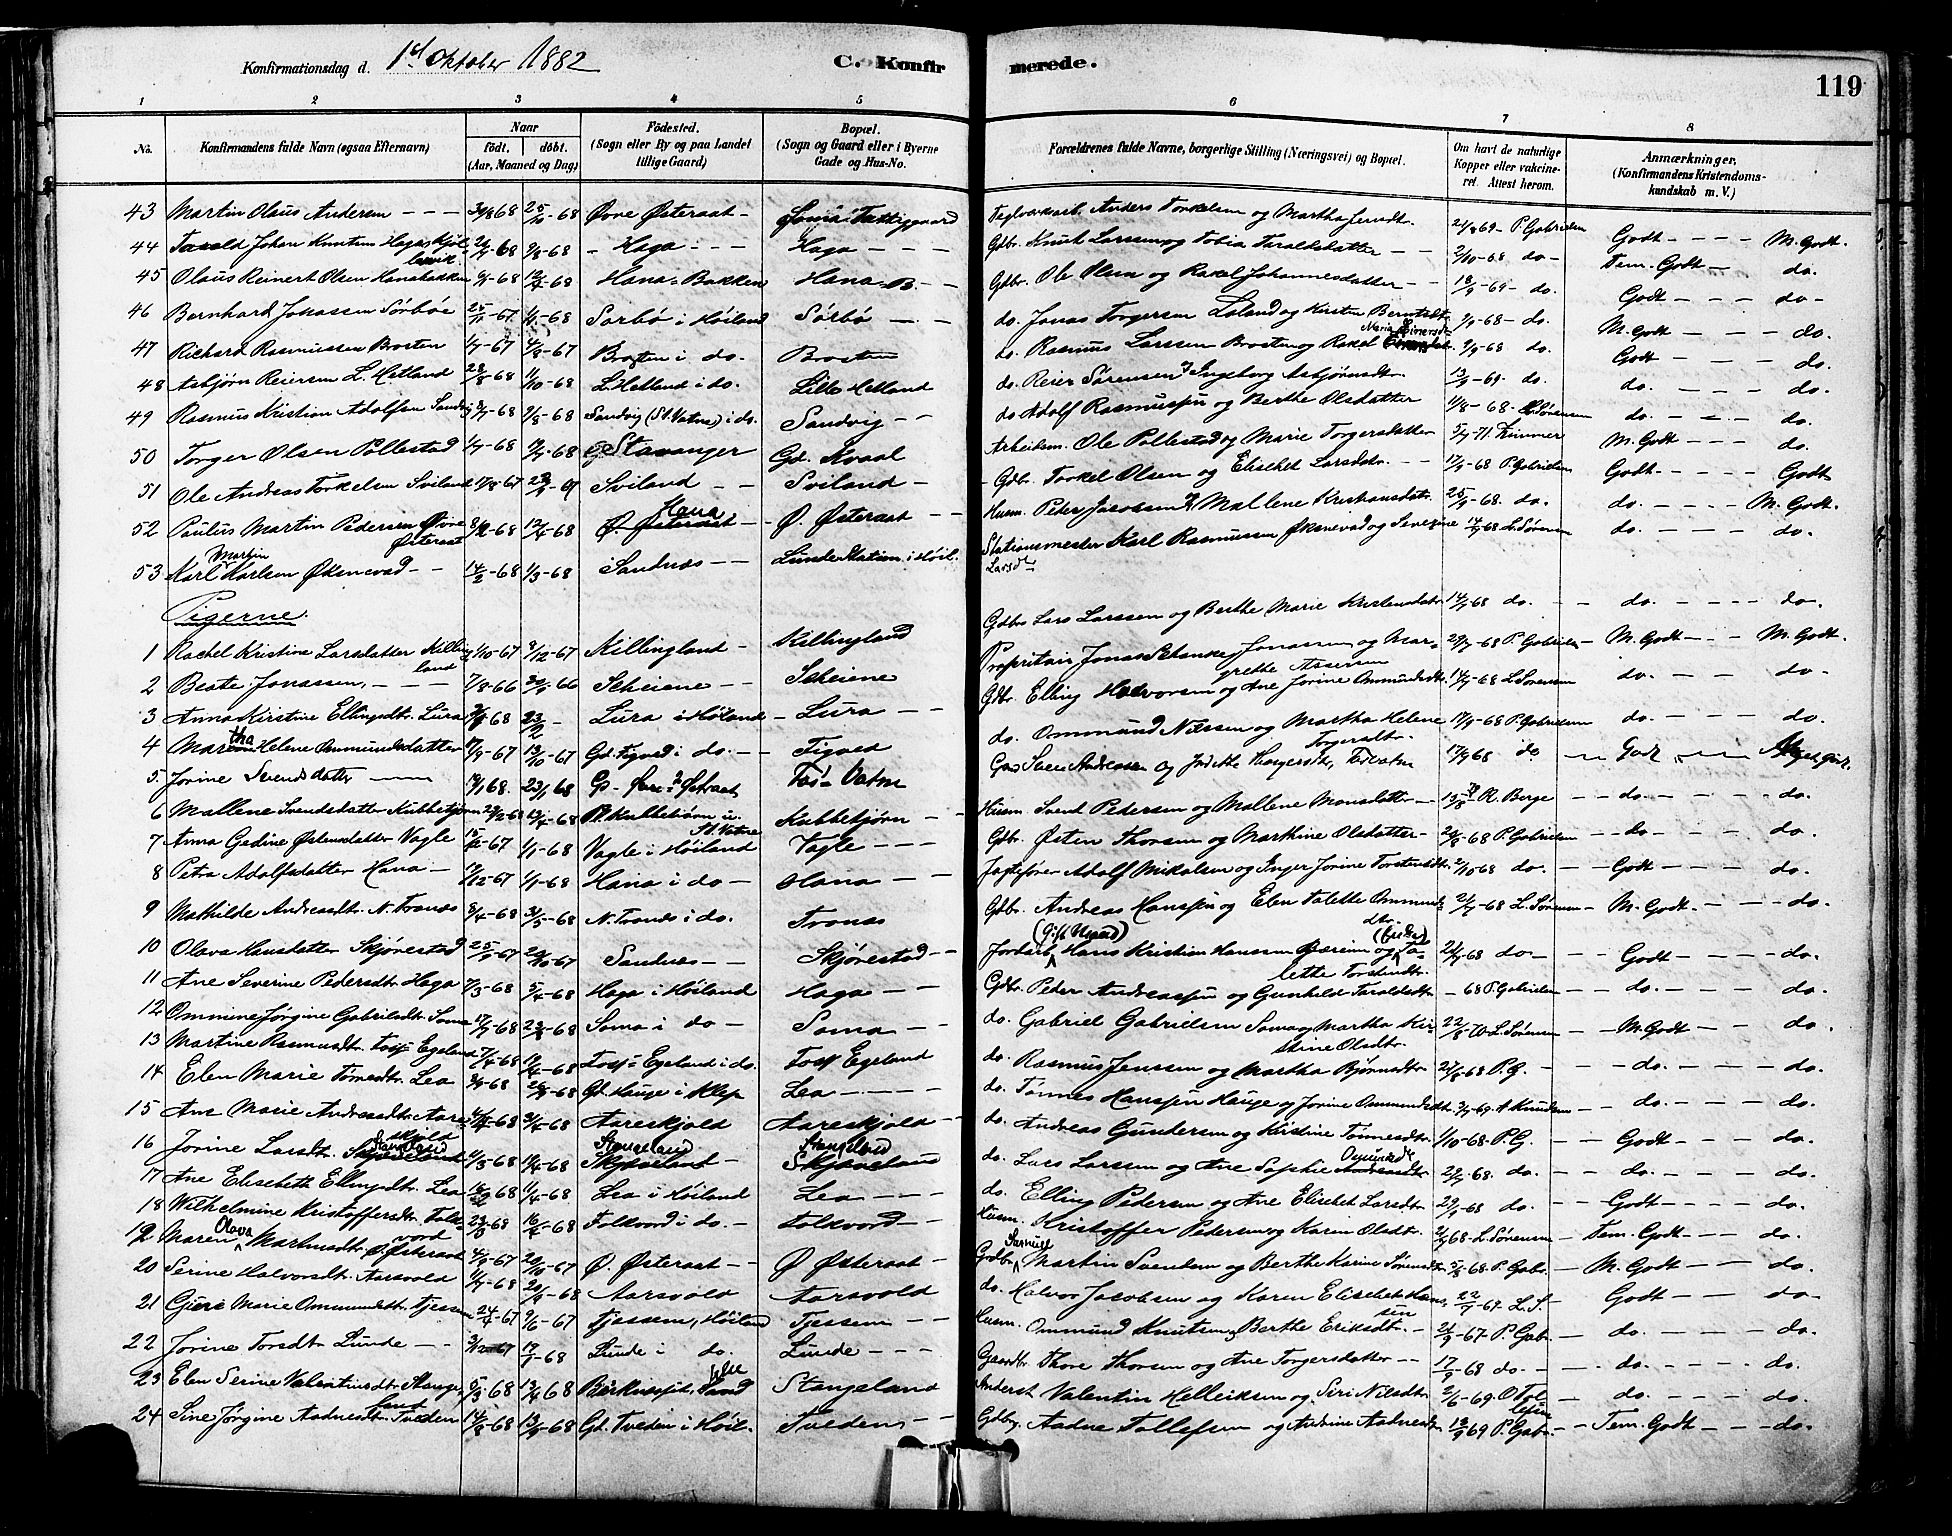 Konfirmationsdag d. 1st Oktober 1882 C. Konfirmerede. 119
1 2 3 4 5 6 7 8
No. Konfirmandens fulde Navn (ogsaa Efternavn) Naar født. døbt. (Aar, Maaned og Dag) Fødested. (Sogn eller By og paa Landet tillige Gaard) Bopæl. (Sogn og Gaard eller i Byerne Gade og Hus-No. Forældrenes fulde Navne, borgerlige Stilling (Næringsvei) og Bopæl. Om havt de naturlige Kopper eller vakcineret. Attest herom. Anmærkninger. (Konfirmandens Kristendomskundskab m. V.)
43 Martin Olaus Andersen - - - 25/10-68 Øvre Østeraat - Soma Fattiggaard Teglværksarb. Anders Torkelsen og Martha Jensdtr. 21/8 69 - P. Gabrielsen Godt - - - M. Godt.
44 Tarald Johan Knutsen Haga 9/8-68 - Haga - - - Haga - - - Gdbr. Knut Larsen og Tobia Taraldsdatter - - 2/10-68 do - Tem. Godt - do.
45 Olaus Reinert Olsen Hanabakken 6/7-68 12/7-68 Hana-Bakken Hana-B. - - Gdbr. Ole Olsen og Rakel Johannesdatter - - 18/9-69 - do. Godt - - - do -
46 Bernhard Jonassen Sørbøe 25/11-67 1/1-68 Sørbø i Høiland Sørbø - - - do. Jonas Torgersen Loland og Kirsten Berntsdtr. 9/9-68 - do. M. Godt - - - do.
47 Richard Rasmussen Brosten 1/7-67 4/8-67 Brosten i do. Brosten do. Rasmus Larssen Brosten og Rakel Maria Einersdtr. 9/9-68 do. Godt - - - do.
48 Asbjørn Reiersen L. Hetland 28/8-68 11/10-68 L. Hetland i do. Lille Hetland do. Reier Sørensen og Ingeborg Asbjørnsdtr. 13/9-69. do. do. - - - do.
49 Rasmus Kristian Adolfsen Sandvig 9/8-68 Sandvig (St. Vatne) i do. Sandvig - - do Adolf Rasmussen og Berthe Olsdatter 11/8-68 - L. Sørensen do. - - - do.
50 Torger Olsen Pollestad 1/7-68 Stavanger Gd. Kvaal Arbeidsm. Ole Pollestad og Marie Torgersdatter 5/7-71 Kimmer M. Godt - - - do.
51 Ole Andreas Torkelsen Sviland 17/8-67 Sviland - - Sviland - - Gdbr. Torkel Olsen og Elisebet Larsdtr. - - 17/9-68 P. Gabrielsen Godt - - - - Godt
52 Paulus Martin Pedersen Øvre Østeraat 12/4-68 Hana Ø. Østeraat - Ø. Østeraat - - Husm. Peder Jacobsen og Mallene Kristiansdatr. 25/9-68. do. do. - - - - M. Godt.
53 Karl Martin Karlsen Øksnevad - - 14/2-68 1/3-68 Sandnæs - - Lunde Station i Høil. Stationsmester Karl Rasmussen Øksnevad og Severine Larsdtr. 14/9 68 L. Sørensen do. - - - do.
Pigerne.
1 Rachel Kristine Larsdatter Killingland 1/10-67 8/12-67 Killingland - Killingland Gdbr Lars Larssen og Berthe Marie Kristensdatr 14/9-68 do. - - do. - - - - do.
2 Beate Jonassen, - - - 7/8-66 30/9 66 Scheiene - - Scheiene Proprietair Jonas Schanke Jonassen og Margrethe Asersen 29/7-68 P. Gabrielsen - M. Godt - - - M. Godt.
3 Anna Kirstine Ellingsdtr. Lura Lura i Høiland - Lura - - Gdbr. Elling Halvorsen og Ane Jorine Ommundsdtr. 14/9-68 L. Sørensen do. - - - do.
4 Martha Helene Ommundsdatter 17/9-67 13/10-67 Gd. Figved i do. - - Figved do. Ommund Nilssen og Martha Helene Torgersdtr. 17/9-68 P. Gabrielsen - do. - - - do.
5 Jorine Svendsdatter - - - 19/1 68. 23/1 68 Øvre Østraat Foss Vatne 17/9 68 do - Godt - - Meget Godt.
6 Mallene Svendsdatter Kubbetjørn Kubbetjørn i St. Vatne Kubbetjørn - - Husm Svend Pedersen og Mallene Monsdatter - R. Berge - - do. - - - do.
7 Anna Gedine Østensdatter Vagle 1/1-68 Vagle i Høiland Vagle - - - Gdbr. Østen Thorsen og Marthine Olsdatter - P. Gabrielsen - - do - - - do.
8 Petra Adolfsdatter Hana - 1/1-68 Hana i do - Hana - - - Jagtefører Adolf Mikalsen og Inger Jorine Torstensdtr. 2/10 68 do. - Godt - - - do.
9 Mathilde Andreasdtr. N. Tronæs 8/4-68 3/5-68 N. Tronæs i do. Tronæs Gdbr. Andreas Hanssen og Elen Talette Ommundsdtr. 21/9-68 L. Sørensen - M. Godt. - - - do.
10 Olava Hansdatter Skjørestad 25/9-67 20/10-67 Sandnæs - - Skjørestad - - Jordarb. (Gift Mand) Hans Kristian Hanssen og (Enke) Talette Torstendtr. 21/9-68 do - - - Godt - - - - do.
11 Ane Severine Pedersdtr. Haga 7/3-68 5/4-68 Haga i Høiland Haga - - - Gdbr. Peder Andreassen og Gunhild Taraldsdtr. - 68 P. Gabrielsen - do. - - - do.
12 Ommine Jørgine Gabrielsdtr. Soma 17/7-68 23/8-68 Soma i do - Soma - - - do. Gabriel Gabrielsen Soma og Martha Kirstine Olsdtr. L. Sørensen - - M. Godt - - - do.
13 Martine Rasmusdtr. Foss Egeland 7/4-68 19/4-68 Foss-Egeland i do. Foss Egeland do. Rasmus Jenssen og Martha Bjørnsdtr. 21/8-68 P. G. - do. - - - do.
14 Elen Marie Tønnesdtr. Lea Gd. Hauge i Klep Lea - - - - do. Tønnes Hanssen Hauge og Jorine Ommundsdtr. 3/7-69 A. Knudsen - - do. - - - do.
15 Ane Marie Andreasdtr. Aareskjold Aareskjold Aareskjold - - do. Andreas Gundersen og Kristine Tønnesdtr. 1/10-68 P. G. - Godt - - - do.
16 Jorine Larsdtr. Stangeland 19/4-68 Stangeland Skjæveland - Stangeland Skjæveland do. Lars Larssen og Ane Sophie Osmundsdtr. Andreasdtr. 68. do. - do. - - - do.
17 Ane Elisebeth Ellingsdtr. Lea Lea i Høiland Lea - - - do. Elling Pedersen og Ane Elisebet Larsdtr. 29/9-68 do. - - Godt - - - do.
18 Wilhelmine Kristoffersdtr. Folkvord 23/3-68 Folkvord i do. - Folkvord - - Husm. Kristoffer Pedersen og Karen Olsdtr. 68 - L. Sørensen - Tem. Godt - - - do.
19 Maren Olava Martinsdtr. Ø. Østeraat Ø. Østeraat - - Ø Østeraat - - Gdbr. Samuel Martin Svendsen og Berthe Karine Sørensdtr. 68. P. Gabr. - M. Godt - - - do.
20 Serine Halvorsdtr. Aarsvold Aarsvold Aarsvold - - do. Halvor Jacobsen og Karen Elisebet Hanssen 22/9-67. L. S. - Godt - - - do
21 Gjere Marie Ommundsdtr. Tjessem 24/4-67 9/6-67 Tjessem, Høiland Tjessem - - Husm. Ommund Knutsen og Berthe Eriksdtr. - 21/9-67. P. Gabr. - do. - - - do.
22 Jorine Torsdtr. Lunde - - Lunde i do. Lunde - - - Gaardbr. Thore Thorsen og Ane Torgersdatter - - 17/9-68 do - - - do. - - - do.
23 Elen Serine Valentinsdtr. Stangeland 5/3 68 13/4 68 Stangeland Valentin Helleiksen og Siri Nilsdtr. 2/6-69 O Tollefsen - do. - - - do.
24 Sine Jørgine Aadnesdtr. Tveden 14/8-68 13/9-68 Gd. Tveden i Høil. Tveden - - Gdbr. Aadne Tollefsen og Andrine Aadnesdtr. 18/9 69 P. Gabr. - - Tem. Godt - - do.